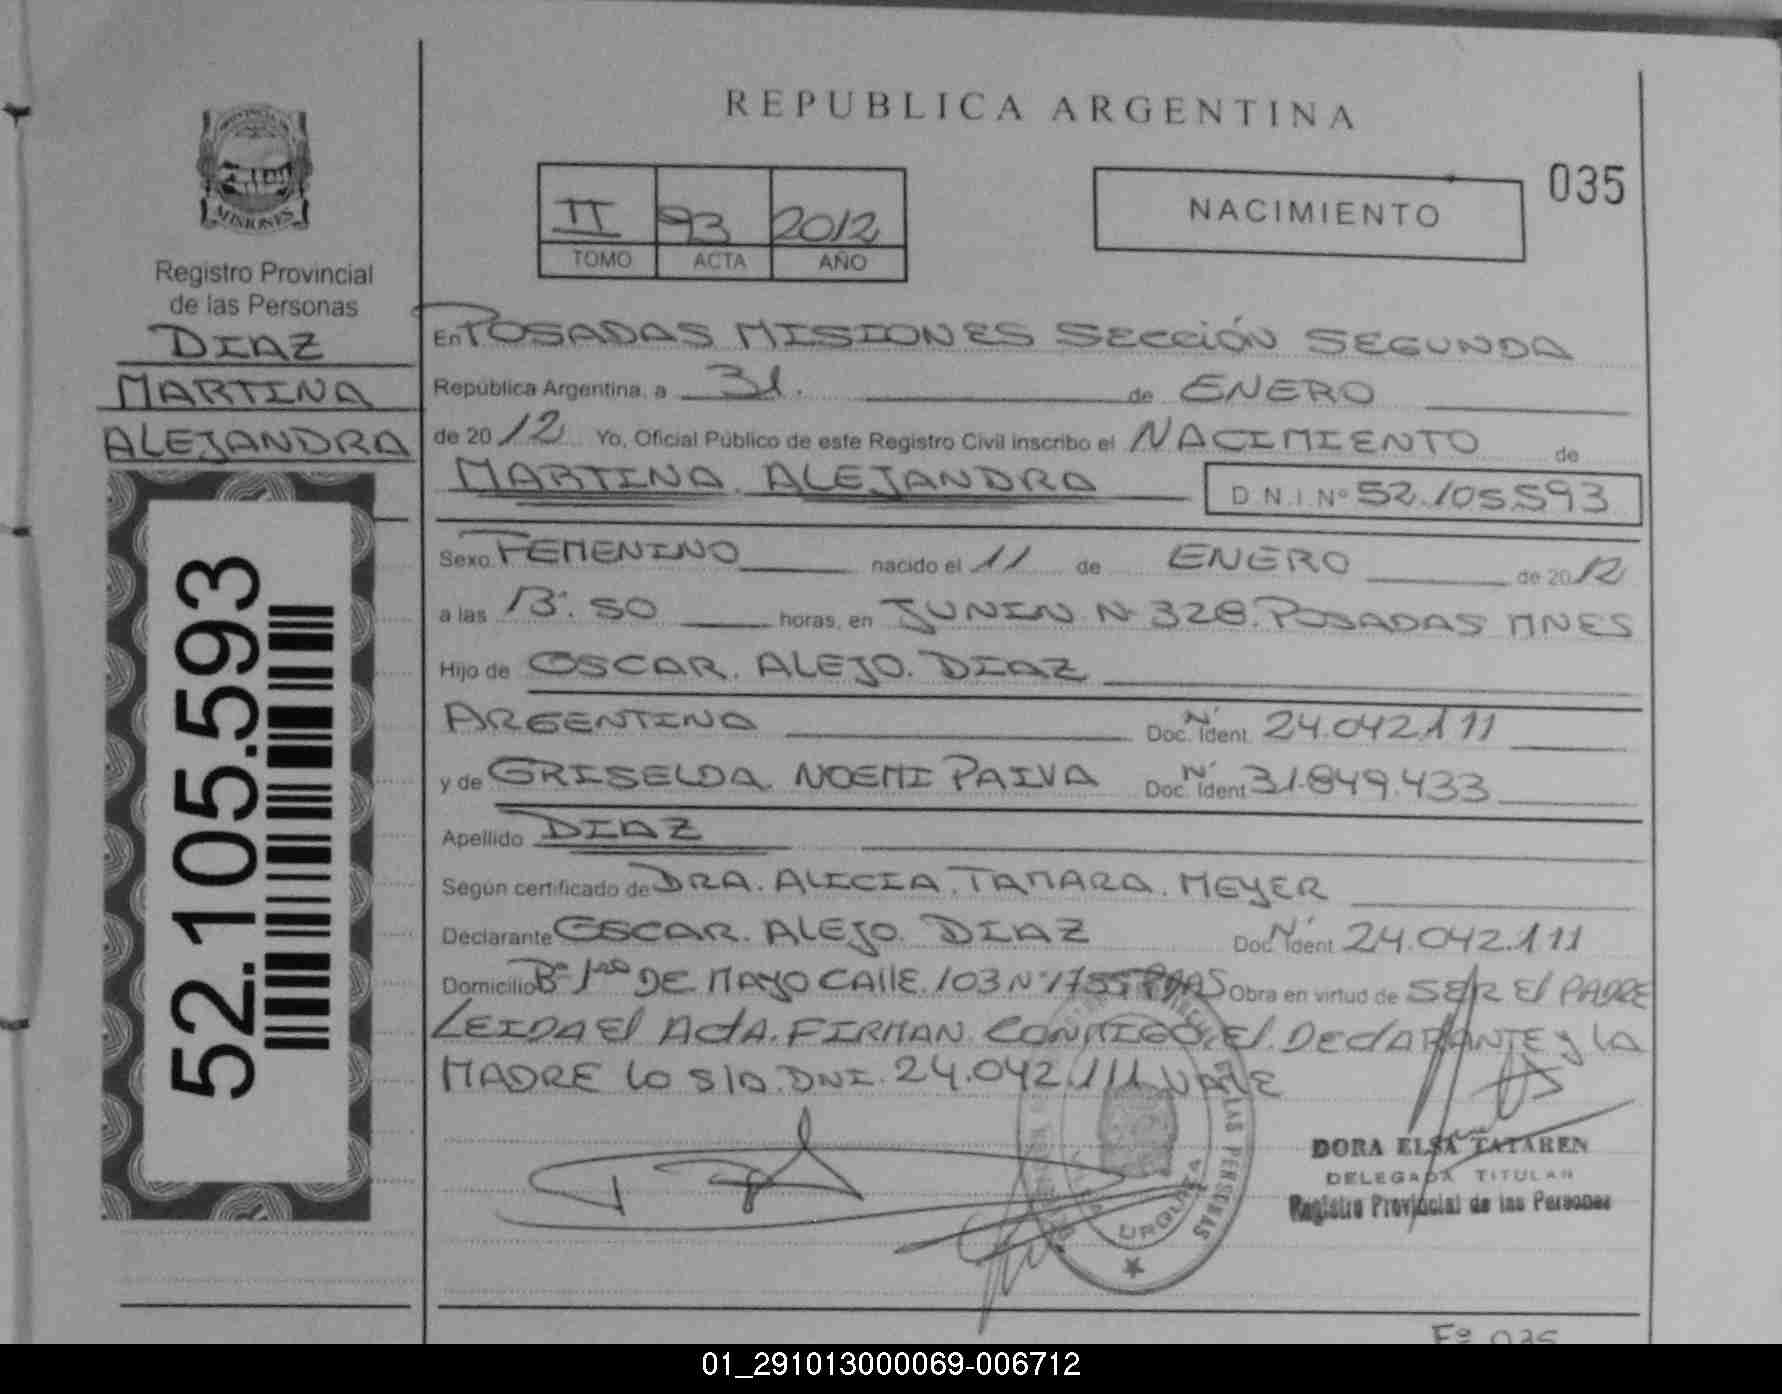 REPUBLICA ARGENTINA
MISIONES
Registro Provincial
de las Personas
DIAZ
MARTINA
ALEJANDRA
52.105.593
II 93 2012
TOMO ACTA AÑO
NACIMIENTO
035
En POSADAS MISIONES SECCIÓN SEGUNDA
República Argentina, a 31. de ENERO
de 2012 Yo, Oficial Público de este Registro Civil inscribo el NACIMIENTO de
MARTINA ALEJANDRA D.N.I. Nº 52.105.593
Sexo FEMENINO nacido el 11 de ENERO de 2012
a las 13.50 horas, en JUNIN Nº 328. POSADAS MNES
Hijo de OSCAR. ALEJO. DIAZ
ARGENTINA Nº Doc. Ident. 24.042.111
y de GRISELDA. NOEMI PAIVA Nº Doc. Ident 31.849.433
Apellido DIAZ
Según certificado de DRA. ALICIA. TAMARA. MEYER
Declarante OSCAR. ALEJO. DIAZ Nº Doc. Ident. 24.042.111
Domicilio Bº 1ro DE MAYO CALLE.103 Nº 1755 PDAS Obra en virtud de SER El PADRE
LEIDA El ACTA. FIRMAN. CONMIGO. El. DECLARANTE y LA
MADRE LO S/D. DNI. 24.042.111 VALE
DORA ELSA TATAREN
DELEGADA TITULAR
Registro Provincial de las Personas
LAS PERSONAS
URQUIZA
Fº 035
01_291013000069-006712